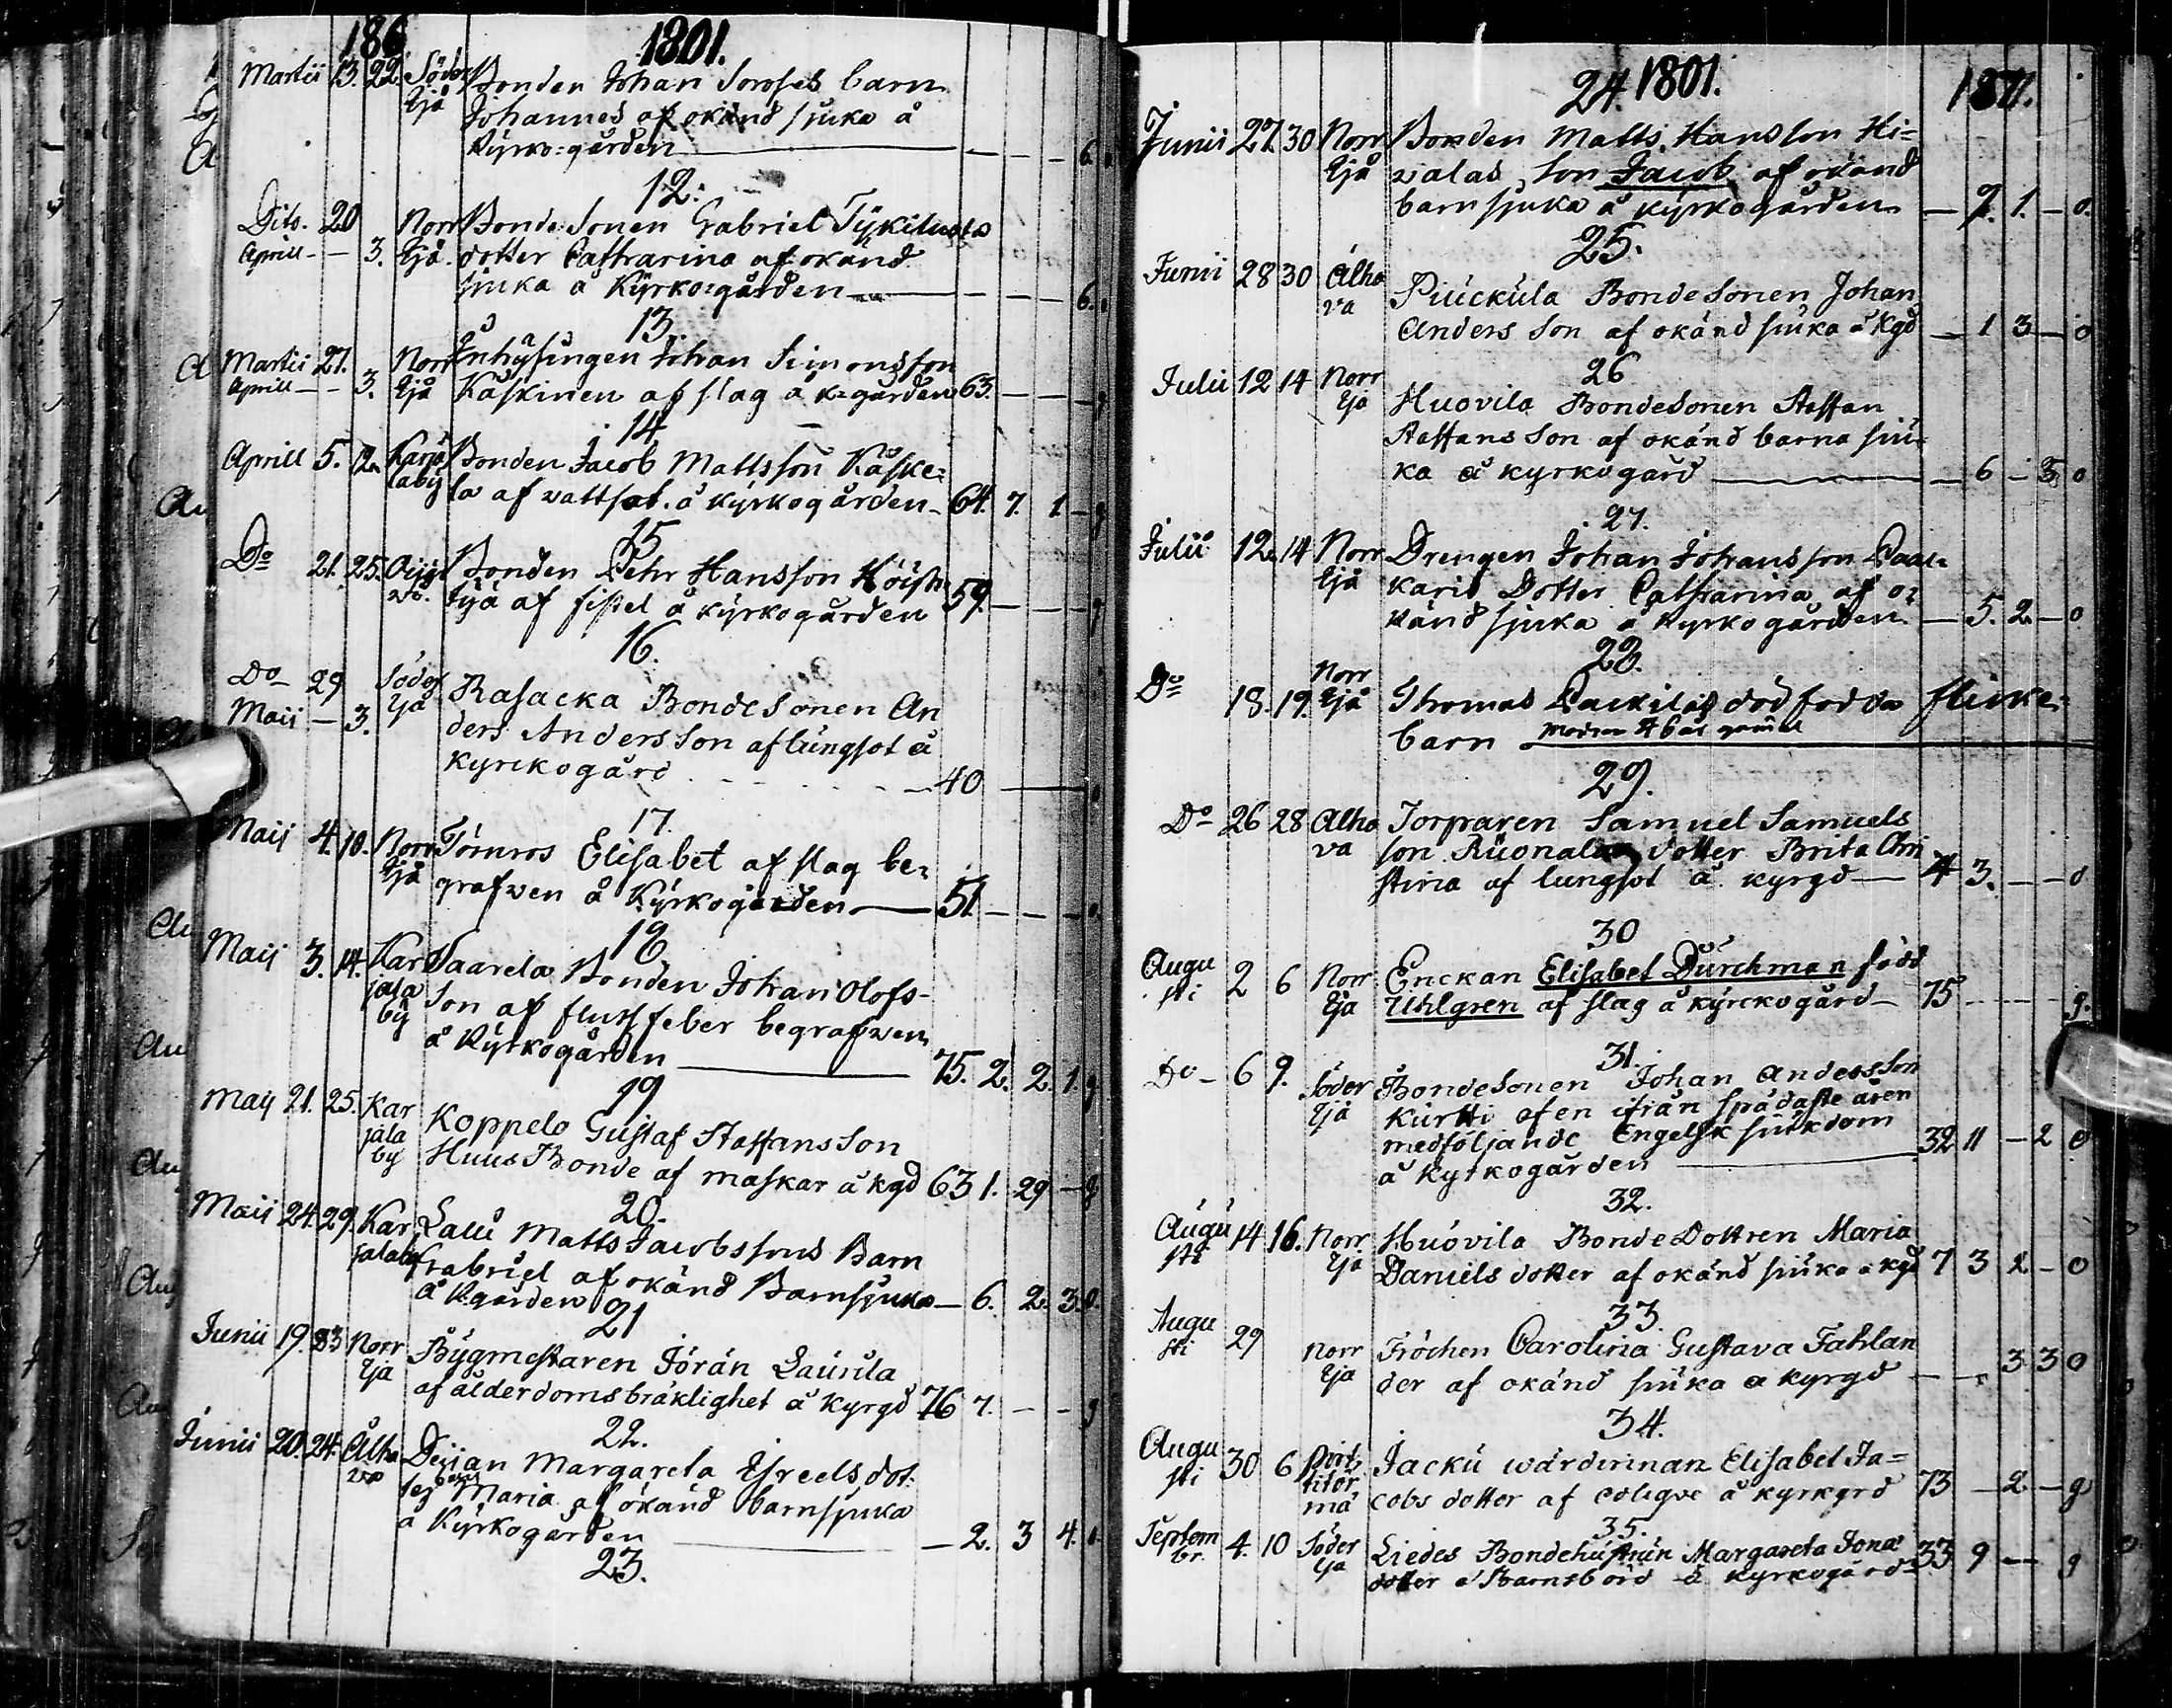 186.
1801.
Martii 13. 22. Söder Bonden Johan Sorosses barn
ljå Johannes af okänd sjuka å
Kyrko=gården — — — 6. o
12.
Dito. 20 Norr Bonde Sonen Gabriel Tykiluoto
Aprill - — 3. ljå. dotter Catharina af okänd
sjuka å Kyrko=gården — — — 6. o
13.
Martii 27. Norr Inhysingen Johan Simonsson
Aprill — - 3. ljå Kaskinen af slag å k=gården 63. — — — g
14
Aprill 5. 12. Karja Bonden Jacob Mattsson Kaske=
laby la af vattsot. å kyrkogården - 64. 7. 1. — g
15
Do 21. 25. Bonden Pehr Hansson Höis
tyjä af fistel å kyrkogården 59. — — — g
16.
Do 29 Söder Rasacka BondeSonen An
Maii — 3. ljå ders Anders Son af lungsot å
Kyrckogård - - - 40 — o
17.
Maij 4. 10. Norr Törnros Elisabet af slag be=
ljå grafwen å Kyrkogården — 51 — — — o.
18
Maij 3. 14. Kar Vaarela Bonden Johan Olofs-
jala Son af fluss feber begrafwen
by å Kyrkogården — 75. 2. 2. 1. g
19
Maij 21. 25. Kar Koppelo Gustaf Staffans Son
jala Huus Bonde af maskar å kgd 63 1. 29 — g
by
20.
Maij 24. 29. Kar Lalu Matts Jacobssons Barn
jalaby Gabriel af okänd Barnsjuka — 6. 2. 3. o.
å Kgården
21
Junii 19. 23 Norr Bygmestaren Jöran Laurila
ljå af ålderdomsbräklighet å Kyrgd 76 7. — - g
22.
Junii 20. 24. Alho Dejan Margareta Esreels dot
va ter Maria af okänd barnsjuka
å Kyrkogården — 2. 3 4. o.
23.
24. 1801. 187.
Junii 27. 30 Norr Bonden Matts Hansson Hi=
ljå walas Son Jacob af okänd
barn sjuka å kyrkogården — 7. 1. — o.
25.
Junii 28 30 Alho Piuckula BondeSonen Johan
va Anders Son af okänd siuka å Kgd — 1 3 — o
26
Julii 12 14 Norr Huovila BondeSonen Staffan
ljå Staffans Son af okänd barna siu=
ka å kyrkogård — 6 - 3 o
27.
Julii 12. 14 Norr Drengen Johan Johansson Laak=
ljå karis Dotter Catharina af o=
känd sjuka å Kyrkogården — 5. 2 — o
28.
Do 18. 19. Norr Thomas Lackilas dödfödda flicke=
ljå barn
29.
Do 26 28 Alho Torparen Samuel Samuels
va son Ruonalan dotter Brita Chri
stina af lungsot å kyrgd — 4 3. — — o
30
Augu 2 6 Norr Enckan Elisabet Durchman född
sti ljå Uhlgren af slag å kyrckogård — 75 - - - - g.
31.
Do - 6 9. Söder BondeSonen Johan Anders Son
ljå Kurtti af en ifrån spädaste åren
medföljande Engelsk siukdom
å kyrkogården — 32 11 — 2 o
32.
Augu 14 16. Norr Huovila BondeDottren Maria
sti ljå Daniels dotter af okänd siuka å kgd 7 3 2 — o
33.
Augu 29 Norr Fröchen Carolina Gustava Fahlan
sti ljå der af okänd siuka å kyrgd — — 3 3 o
34.
Augu 30 6 Jacku wärdinnan Elisabet Ja=
sti cobs dotter af colique å kyrkgrd 73 — 2 — g
35.
Septem 4. 10 Söder Liedes Bondehustrun Margareta Jona
br. ljå dotter å Barnsbörd å kyrkogård 33 9 — g